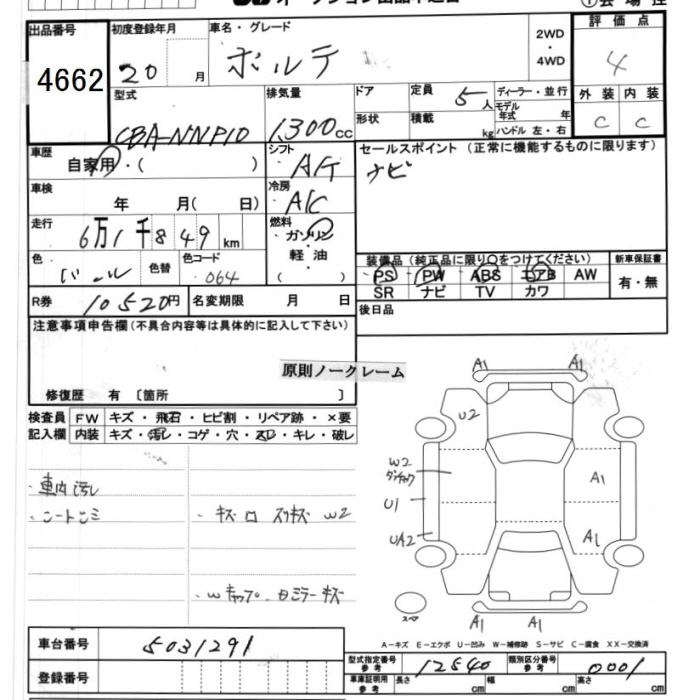 出品番号 初度登録年月 車名・グレード 評価点
4662 20 月 ポルテ 2WD ・ 4WD 4
型式 排気量 ドア 定員 5人 ディーラー・並行 外装 内装
CBA-NNP10 1300cc 形状 積載 kg モデル年式 年 C C
ハンドル 左・右
車歴 自家用・( ) シフト A/T セールスポイント (正常に機能するものに限ります)
車検 年 月( 日) 冷房 A/C ナビ
走行 6万1千849km 燃料 ガソリン・軽油( )
色 パール 色替 色コード 064 装備品 (純正品に限り○をつけてください) 新車保証書
PS PW ABS エアB AW 有・無
SR ナビ TV カワ
R券 10520円 名変期限 月 日 後日品
注意事項申告欄(不具合内容等は具体的に記入して下さい)
原則ノークレーム
修復歴 有 〔箇所 〕
検査員 FW キズ・飛石・ヒビ割・リペア跡・×要
記入欄 内装 キズ・汚レ・コゲ・穴・・キレ・破レ
A1 A1
U2
W2 A1
U1
UA2 A1
A1 A1
・車内汚れ
・シートシミ ・キズ W2
・Wキャップ・ミラーキズ
スペア
A-キズ E-エクボ U-凹み W-補修跡 S-サビ C-腐食 XX-交換済
車台番号 5031291
型式指定番号 参考 12540 類別区分番号 参考 0001
登録番号 車庫証明用 参考 長さ cm 幅 cm 高さ cm